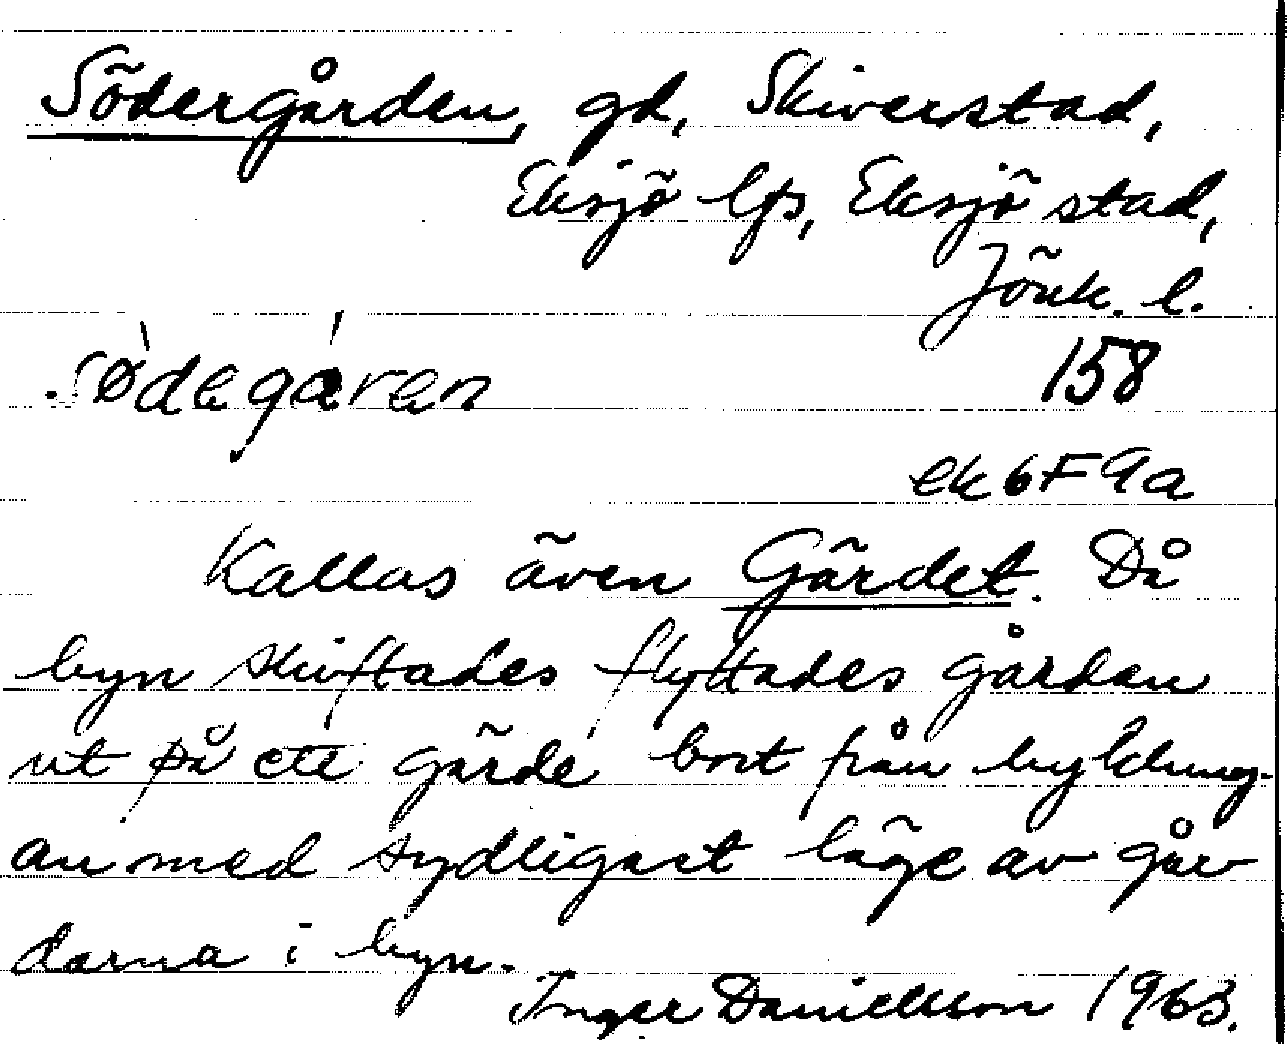 Södergården, gd, Skiverstad,
Eksjö lfs, Eksjö stad,
Jönk. l.
sø̀degáren 158
ek 6F 9a
Kallas även Gärdet. Då
byn skiftades flyttades gården
ut på ett gärde bort från byklung-
an med sydligast läge av går
darna i byn.
Inger Danielsson 1963.